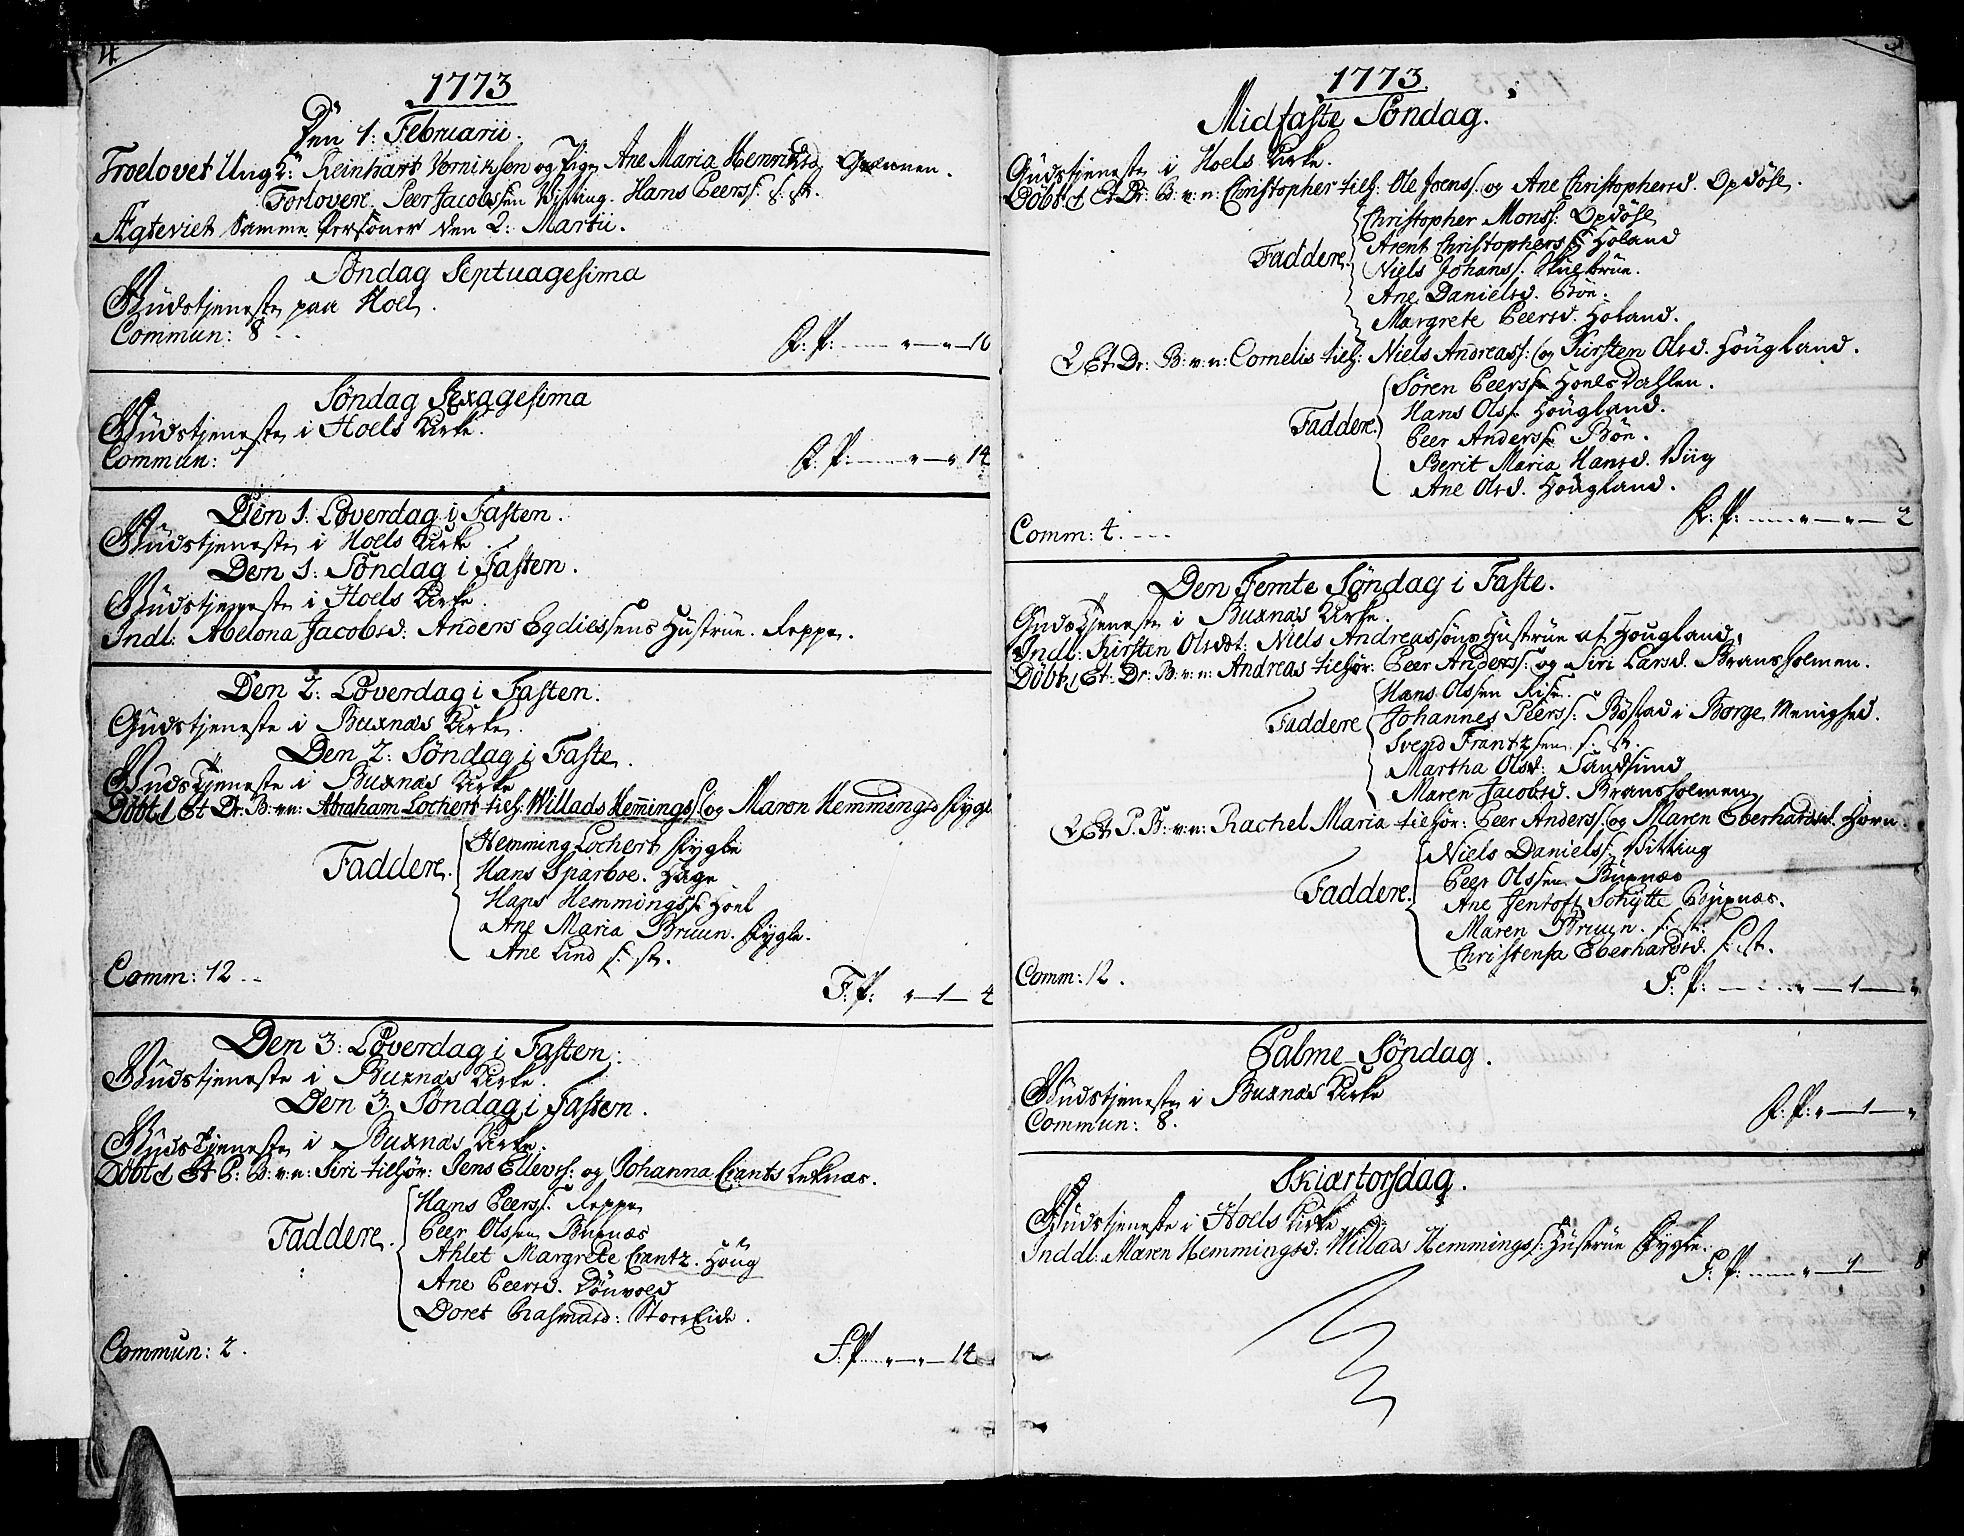 4
1773
Den 1: Februarii.
Troelovet Ung K: Reinhart Vernichsen og Pige Ane Maria Hemingsd
Forlovere. Peer Jacobssen Vitting. Hans Peerss: s: st.
Ægteviet Samme Personer den 2: Martii.
Søndag Septuagesima
Gudstjeneste paa Hoel.
Commun: 8
F: P: 16
Søndag Sexagesima
Gudstjeneste i Hoels Kirke.
Commun: 7
F: P: 14
Den 1: Løverdag i Fasten.
Gudstjeneste i Hoels Kirke
Den 1: Søndag i Fasten.
Gudstjeneste i Hoels Kirke.
Indl: Abelona Jacobsd: Anders Egdiessens Hustrue. Reppe.
Den 2: Løverdag i Fasten.
Gudstjeneste i Buxnæs Kirke.
Den 2: Søndag i Faste.
Gudstjeneste i Buxnæs Kirke
Døbt 1 Et Dr: B: v: n: Abraham Lochert tilh: Willads Hemmings: og Maren Hemmingsd Fygle
Faddere.
Hemming Lochert Fygle
Hans Sparboe. Hage
Hans Hemmingss: Hoel
Ane Maria Bruun. Fygle.
Ane Lind s: st.
Comm: 12
F: P: 1 4
Den 3: Løverdag i Fasten:
Gudstjeneste i Buxnæs Kirke.
Den 3: Søndag i Fasten.
Gudstjeneste i Buxnæs Kirke.
Døbt 1 Et P: B: v: n: Siri tilhør: Jens Ellevss: og Johanna Crants Leknæs.
Faddere.
Hans Peerss: Reppe
Peer Olssen Buxnæs
Ahlet Margrete Crantz. Houg
Ane Peersd. Sønvold
Doret Rasmusd: StorEide.
Commun: 2.
F: P: 14
1773.
Midfaste Søndag.
Gudstjeneste i Hoels Kirke.
Døbt 1 Et Dr: B: v: n: Christopher tilh: Ole Joenss: og Ane Christophersd. Opdøhl.
Faddere.
Christopher Monss: Opdøhl
Arent Christopherss: Holand
Niels Johanss. Skulbrue.
Ane Danielsd. Bøe.
Margrete Peersd. Holand.
2 Et Dr: B: v: n: Cornelis tilh: Niels Andreass: og Kirsten Olsd. Hougland.
Faddere.
Søren Peerss: Hoelsdahlen.
Hans Olss: Hougland.
Peer Anderss: Bøe.
Berit Maria Hansd. Viig
Ane Olsd. Hougland.
Comm: 4.
F: P: 2
Den Femte Søndag i Faste.
Gudstjeneste i Buxnæs Kirke.
Indl: Kirsten Olsdot: Niels Andreassøns Hustrue af Hougland.
Døbt 1 Et Dr: B: v: n: Andreas tilhør: Peer Anderss: og Siri Larsd. Bransholmen.
Faddere
Hans Olssen Rise.
Johannes Peerss: Bøstad i Borge Menighed.
Svend Frantzsen s: st.
Martha Olsd: Sandsund
Maren Jacobsd. Bransholmen
2 Et P: B: v: n: Rachel Maria tilhør: Peer Anderss: og Maren Eberhardsd. Horn
Faddere.
Niels Danielss: Vitting
Peer Olssen Buxnæs
Ane Jentoft Schytte Buxnæs.
Maren Bruun. s: st:
Christensa Eberhardsd. s: st.
Comm: 12.
F: P: 1
Palme-Søndag.
Gudstjeneste i Buxnæs Kirke
Commun: 8.
F: P: 1
Skiærtorsdag.
Gudstjeneste i Hoels Kirke
Inddl: Maren Hemmingsd: Willads Hemmingss: Hustrue Fygle.
F: P: 1 8